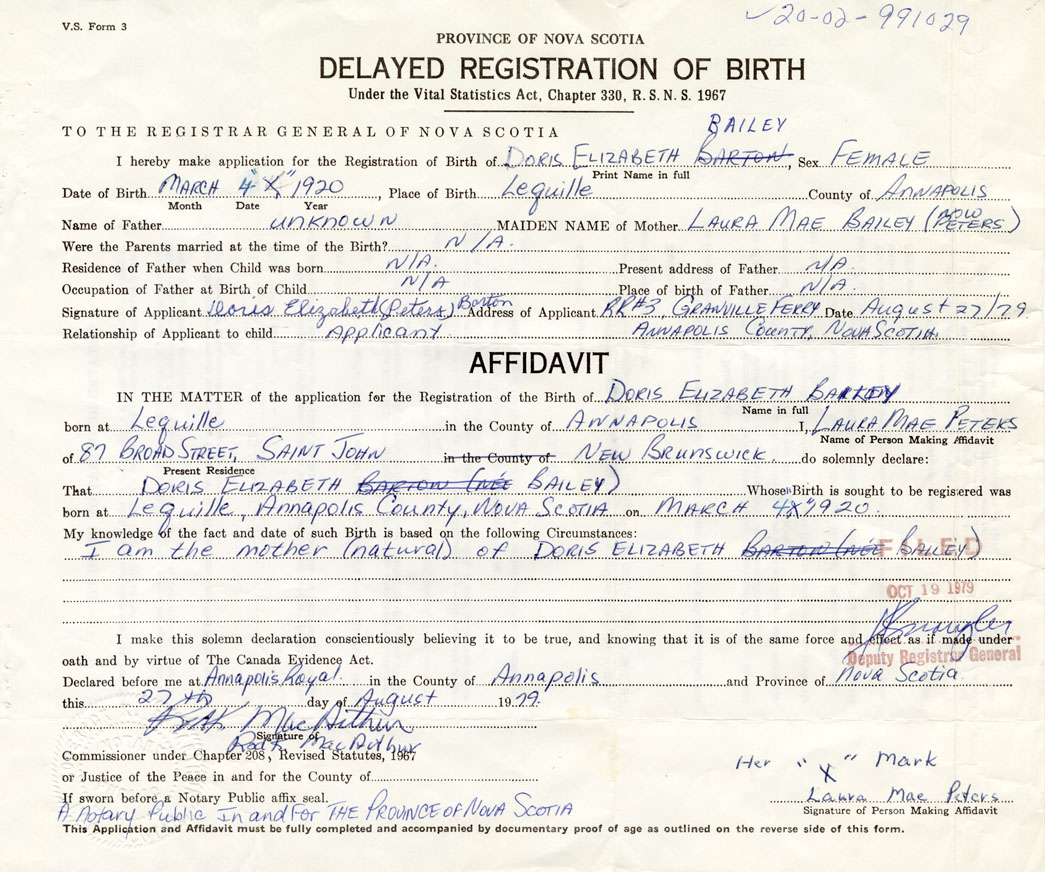 V.S. Form 3
✓20-02-991029
PROVINCE OF NOVA SCOTIA
DELAYED REGISTRATION OF BIRTH
Under the Vital Statistics Act, Chapter 330, R. S. N. S. 1967
TO THE REGISTRAR GENERAL OF NOVA SCOTIA
BAILEY
I hereby make application for the Registration of Birth of DORIS ELIZABETH BARTON, Sex FEMALE
Print Name in full
Date of Birth MARCH 4 "X" 1920, Place of Birth Lequille County of ANNAPOLIS
Month Date Year
Name of Father UNKNOWN MAIDEN NAME of Mother LAURA MAE BAILEY (NOW PETERS)
Were the Parents married at the time of the Birth? N/A.
Residence of Father when Child was born N/A. Present address of Father N/A.
Occupation of Father at Birth of Child N/A Place of birth of Father N/A.
Signature of Applicant Doris Elizabeth (Peters) Barton Address of Applicant RR#3, GRANVILLE FERRY Date August 27/79
Relationship of Applicant to child Applicant ANNAPOLIS COUNTY, NOVA SCOTIA.
AFFIDAVIT
IN THE MATTER of the application for the Registration of the Birth of DORIS ELIZABETH BAILEY
Name in full
born at Lequille in the County of ANNAPOLIS I, LAURA MAE PETERS
Name of Person Making Affidavit
of 87 BROAD STREET, SAINT JOHN in the County of NEW BRUNSWICK do solemnly declare:
Present Residence
That DORIS ELIZABETH BARTON (née BAILEY) Whose Birth is sought to be registered was
born at Lequille, Annapolis County, NOVA SCOTIA on MARCH 4 "X" 1920.
My knowledge of the fact and date of such Birth is based on the following Circumstances:
I am the mother (natural) of DORIS ELIZABETH BARTON (née BAILEY)
FILED
OCT 19 1979
I make this solemn declaration conscientiously believing it to be true, and knowing that it is of the same force and effect as if made under
oath and by virtue of The Canada Evidence Act.
Deputy Registrar General
Declared before me at Annapolis Royal in the County of Annapolis and Province of Nova Scotia
this 27th day of August 1979.
MacArthur
Signature of
MacArthur
Commissioner under Chapter 208, Revised Statutes, 1967
or Justice of the Peace in and for the County of
Her "X" Mark
If sworn before a Notary Public affix seal.
Laura Mae Peters
Signature of Person Making Affidavit
A Notary Public In and FOR THE PROVINCE OF NOVA SCOTIA
This Application and Affidavit must be fully completed and accompanied by documentary proof of age as outlined on the reverse side of this form.